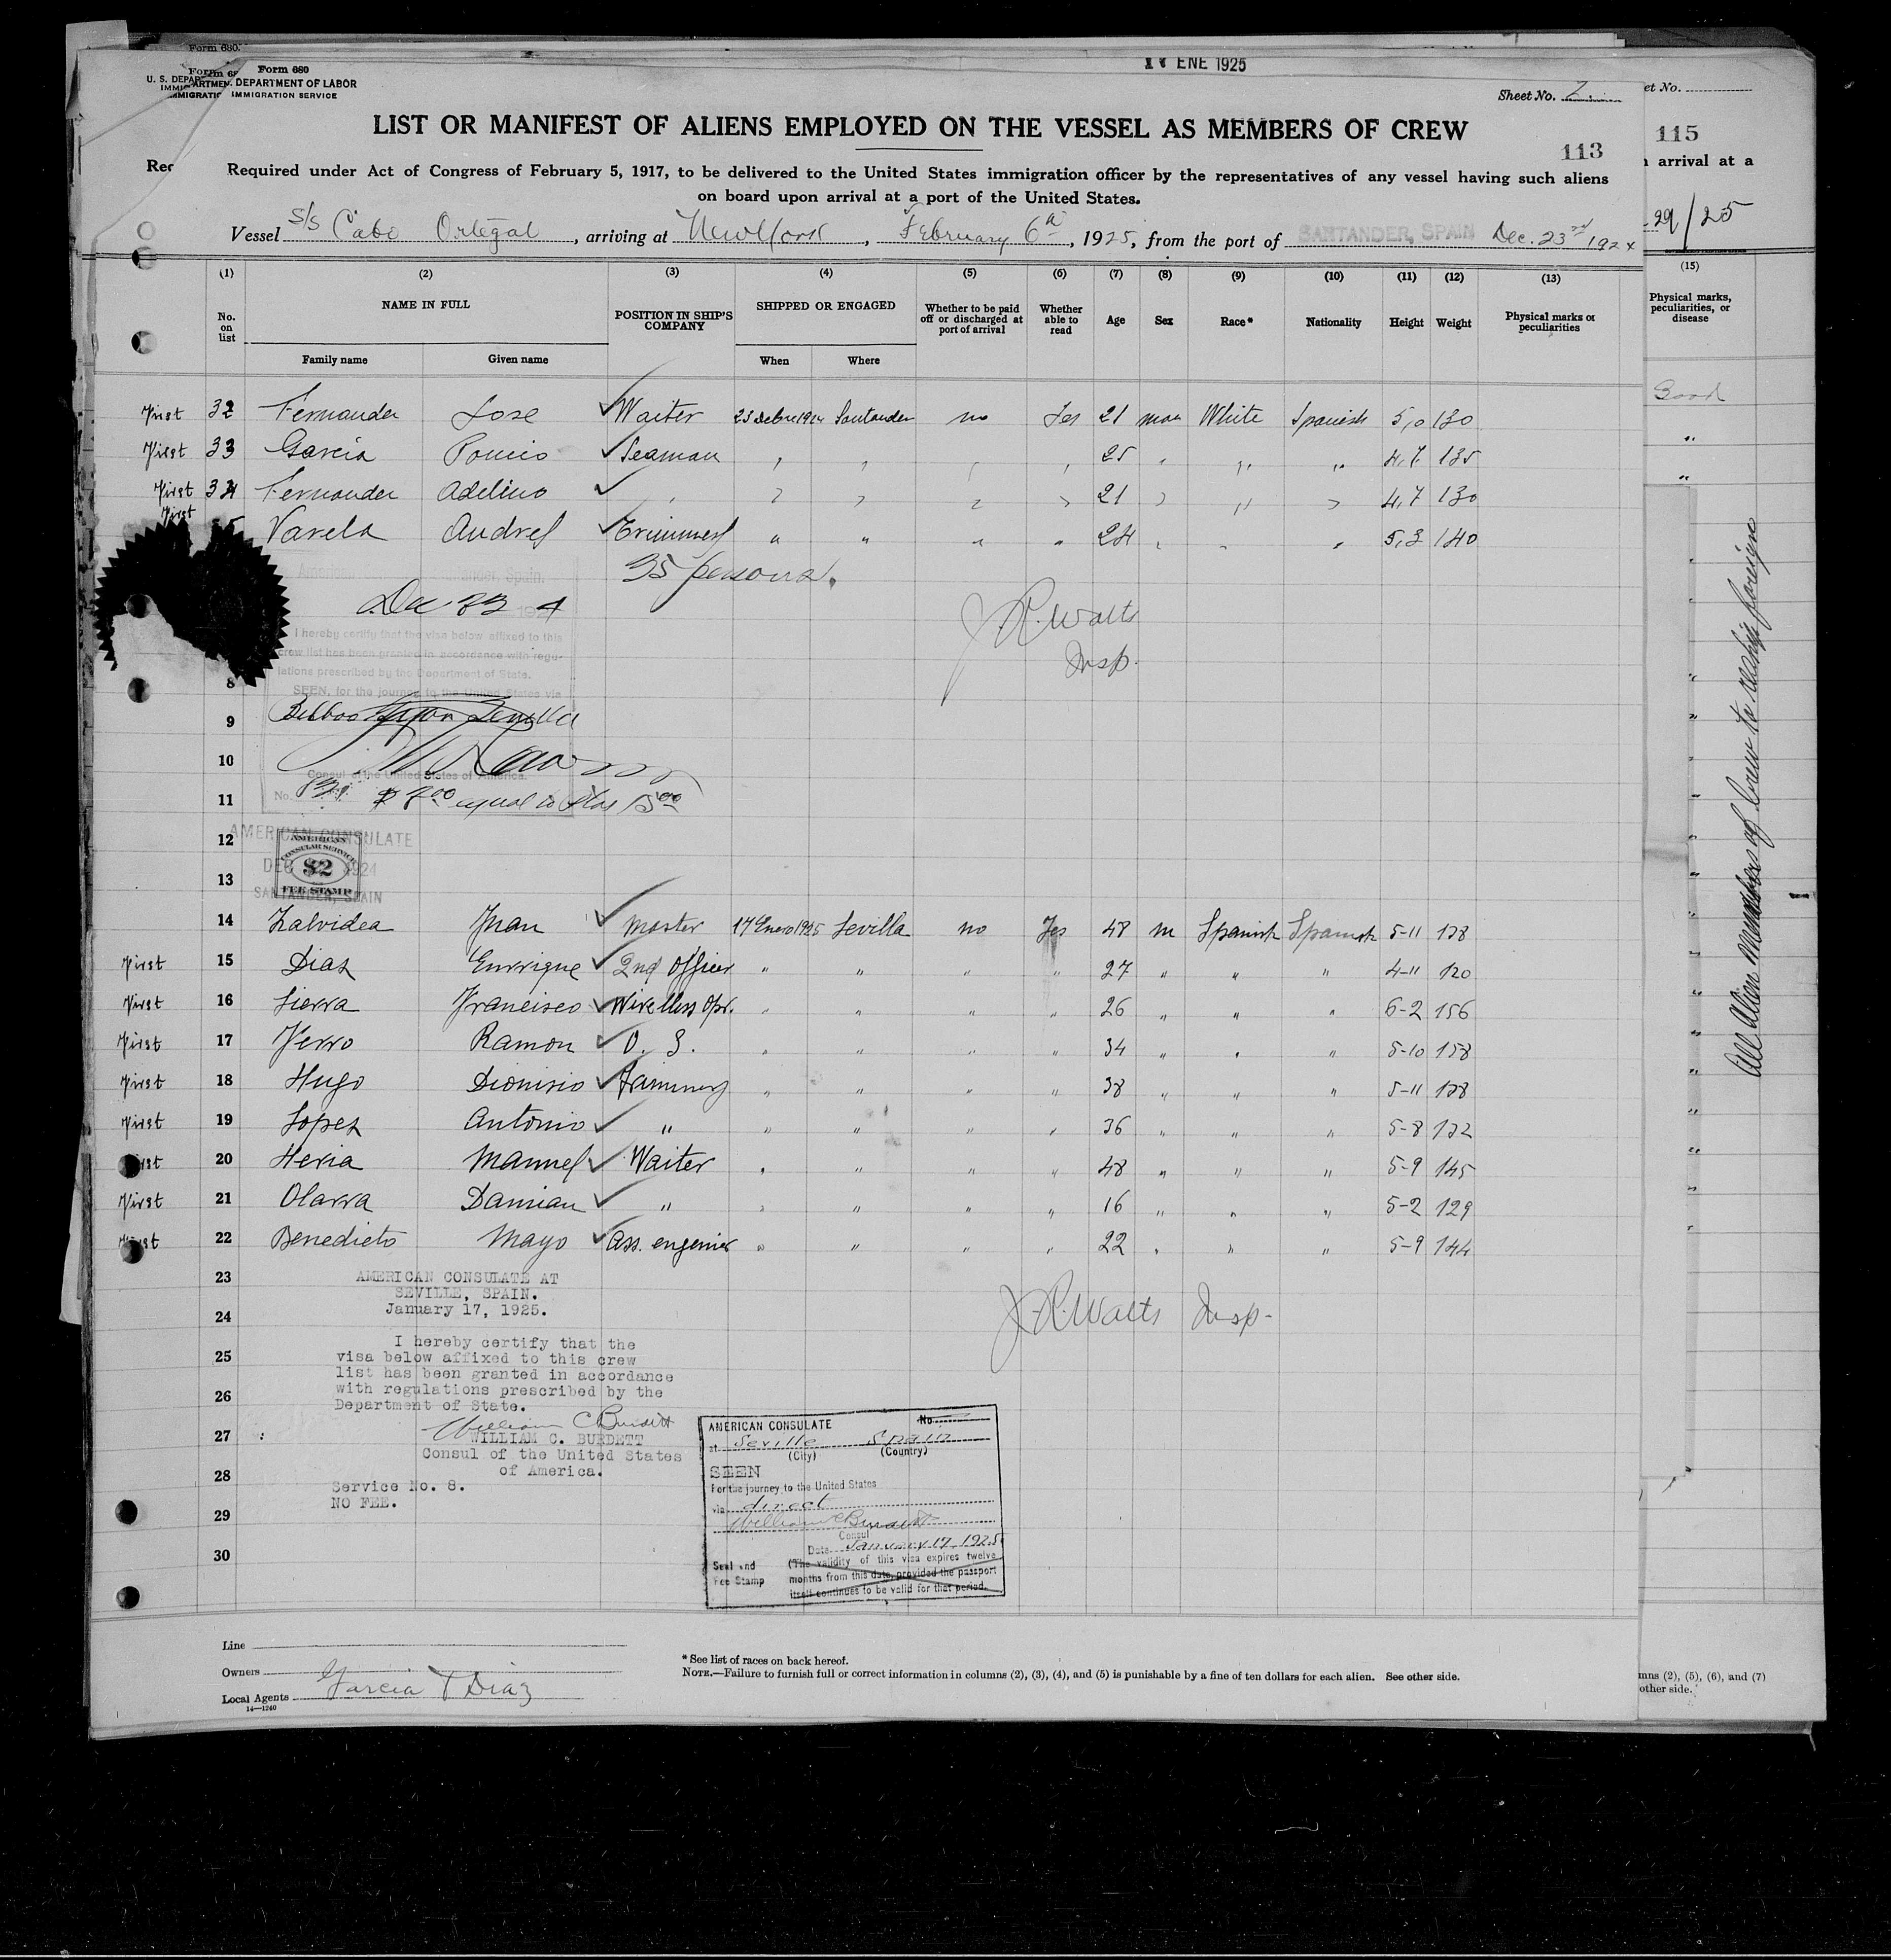 Form 680.
17 ENE 1925
Form 680
U. S. DEPARTMENT OF LABOR
IMMIGRATION SERVICE
Sheet No. 2.
et No.
LIST OR MANIFEST OF ALIENS EMPLOYED ON THE VESSEL AS MEMBERS OF CREW
113
115
Required under Act of Congress of February 5, 1917, to be delivered to the United States immigration officer by the representatives of any vessel having such aliens
on board upon arrival at a port of the United States.
arrival at a
29/25
Vessel S/S Cabo Ortegal, arriving at New York, February 6th, 1925, from the port of SANTANDER, SPAIN Dec. 23rd 1924
(1) (2) (3) (4) (5) (6) (7) (8) (9) (10) (11) (12) (13) (15)
No. on list NAME IN FULL Family name Given name POSITION IN SHIP'S COMPANY SHIPPED OR ENGAGED When Where Whether to be paid off or discharged at port of arrival Whether able to read Age Sex Race* Nationality Height Weight Physical marks or peculiarities
Physical marks, peculiarities, or disease
Good
First 32 Fernandez Jose Waiter 23 Dbre 1924 Santander no Yes 21 man White Spanish 5,0 130
First 33 Garcia Seaman " " " " 25 " " " 4,7 135
First 34 Fernandez Adelino " " " " " 21 " " " 4,7 130
First Varela Andres Trimmers " " " " 24 " " " 5,3 140
35 persons.
J.R. Watts
Insp.
Dec 23 4
I hereby certify that the visa below affixed to this
crew list has been granted in accordance with regu-
lations prescribed by the Department of State.
8
SEEN, for the journey to the United States via
9 Bilbao Sevilla
10
Consul of the United States of America.
11 No. equal to
12 AMERICAN CONSULATE
AMERICAN CONSULAR SERVICE $2 FEE STAMP
13 DEC 1924
SANTANDER, SPAIN
14 Zalvidea Juan Master 17 Enero 1925 Sevilla no Yes 48 m Spanish Spanish 5-11 138
First 15 Diaz Enrrique 2nd Officer " " " " 27 " " " 4-11 120
First 16 Sierra Francisco Wireless Opr. " " " " 26 " " " 6-2 156
First 17 Yerro Ramon O. S. " " " " 34 " " " 5-10 158
First 18 Hugo Dionisio Trimmers " " " " 38 " " " 5-11 138
First 19 Lopez Antonio " " " " " 36 " " " 5-8 132
First 20 Heria Manuel Waiter " " " " 48 " " " 5-9 145
First 21 Olarra Damian " " " " " 16 " " " 5-2 129
First 22 Benedicto Mayo Ass. engenier " " " " 22 " " " 5-9 144
All Alien Members of Crew to reship foreign
23 AMERICAN CONSULATE AT
SEVILLE, SPAIN.
24 January 17, 1925.
J.R. Watts Insp.
I hereby certify that the
25 visa below affixed to this crew
list has been granted in accordance
26 with regulations prescribed by the
Department of State.
William C Burdett
27 WILLIAM C. BURDETT
Consul of the United States
28 of America.
Service No. 8.
NO FEE.
29
30
AMERICAN CONSULATE No.
at Seville Spain
(City) (Country)
SEEN
For the journey to the United States
via direct
William C Burdett
Consul
Date January 17, 1925
Seal and Fee Stamp
(The validity of this visa expires twelve
months from this date, provided the passport
itself continues to be valid for that period.
Line
Owners
Local Agents Garcia Y Diaz
14—1240
* See list of races on back hereof.
NOTE.—Failure to furnish full or correct information in columns (2), (3), (4), and (5) is punishable by a fine of ten dollars for each alien. See other side.
mns (2), (5), (6), and (7)
other side.